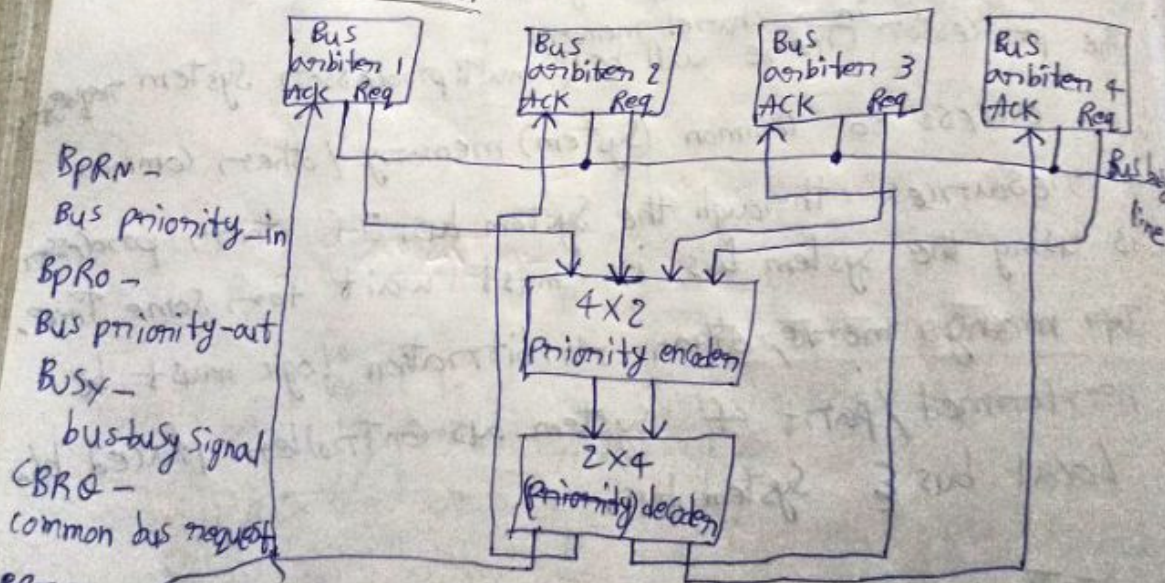 Bus
arbiter 1
Ack Req
Bus
arbiter 2
ACK Req
Bus
arbiter 3
ACK Req
Bus
arbiter 4
ACK Req
Bus busy
line
BPRN -
Bus priority-in
BPRO -
Bus priority-out
BUSY -
bus busy signal
CBRQ -
common bus request
4X2
Priority encoder
2X4
(Priority) decoder